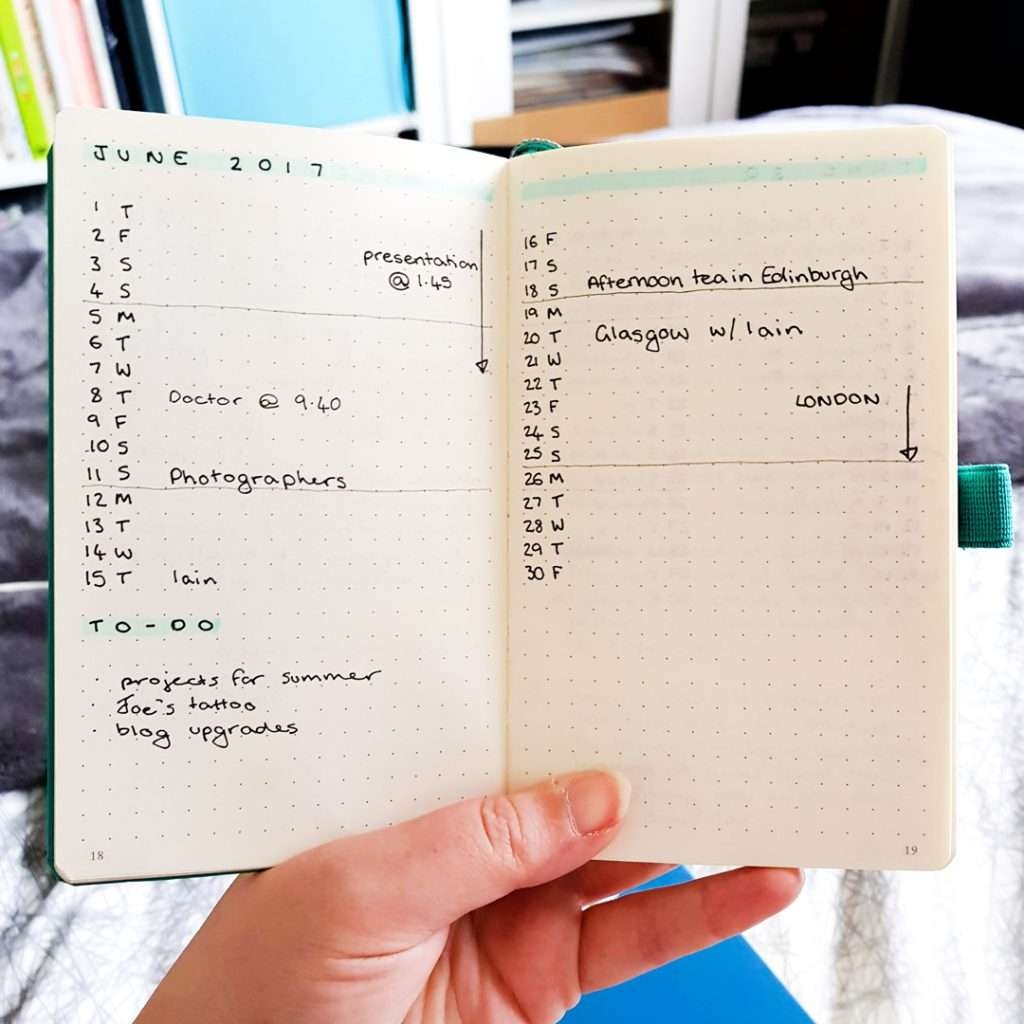 JUNE 2017
1 T
2 F
3 S presentation
@ 1.45
4 S
5 M
6 T
7 W
8 T Doctor @ 9.40
9 F
10 S
11 S Photographers
12 M
13 T
14 W
15 T Iain
TO-DO
· projects for summer
· Joe's tattoo
· blog upgrades
18
16 F
17 S
18 S Afternoon tea in Edinburgh
19 M
20 T Glasgow w/ Iain
21 W
22 T
23 F LONDON
24 S
25 S
26 M
27 T
28 W
29 T
30 F
19